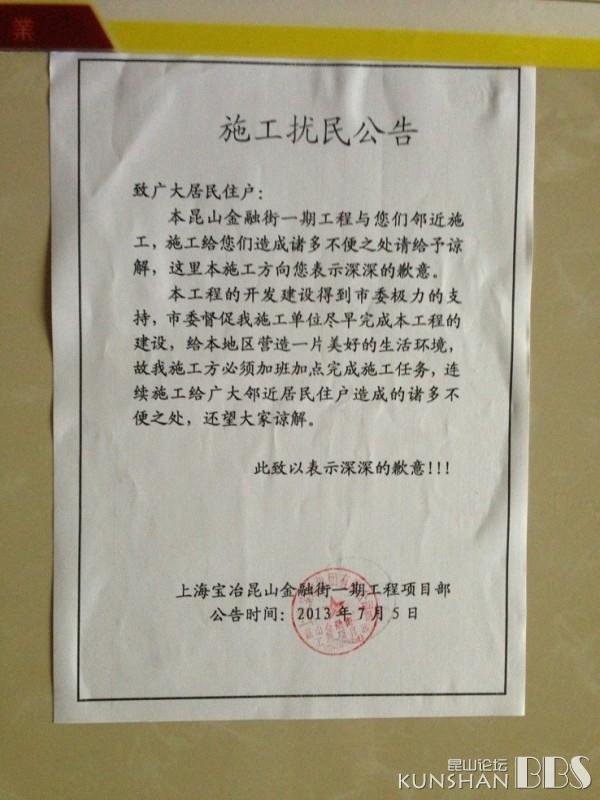 業
施工扰民公告
致广大居民住户：
本昆山金融街一期工程与您们邻近施
工，施工给您们造成诸多不便之处请给予谅
解，这里本施工方向您表示深深的歉意。
本工程的开发建设得到市委极力的支
持，市委督促我施工单位尽早完成本工程的
建设，给本地区营造一片美好的生活环境，
故我施工方必须加班加点完成施工任务，连
续施工给广大邻近居民住户造成的诸多不
便之处，还望大家谅解。
此致以表示深深的歉意!!!
上海宝冶昆山金融街一期工程项目部
公告时间：2013 年 7 月 5 日
昆山论坛
KUNSHAN BBS